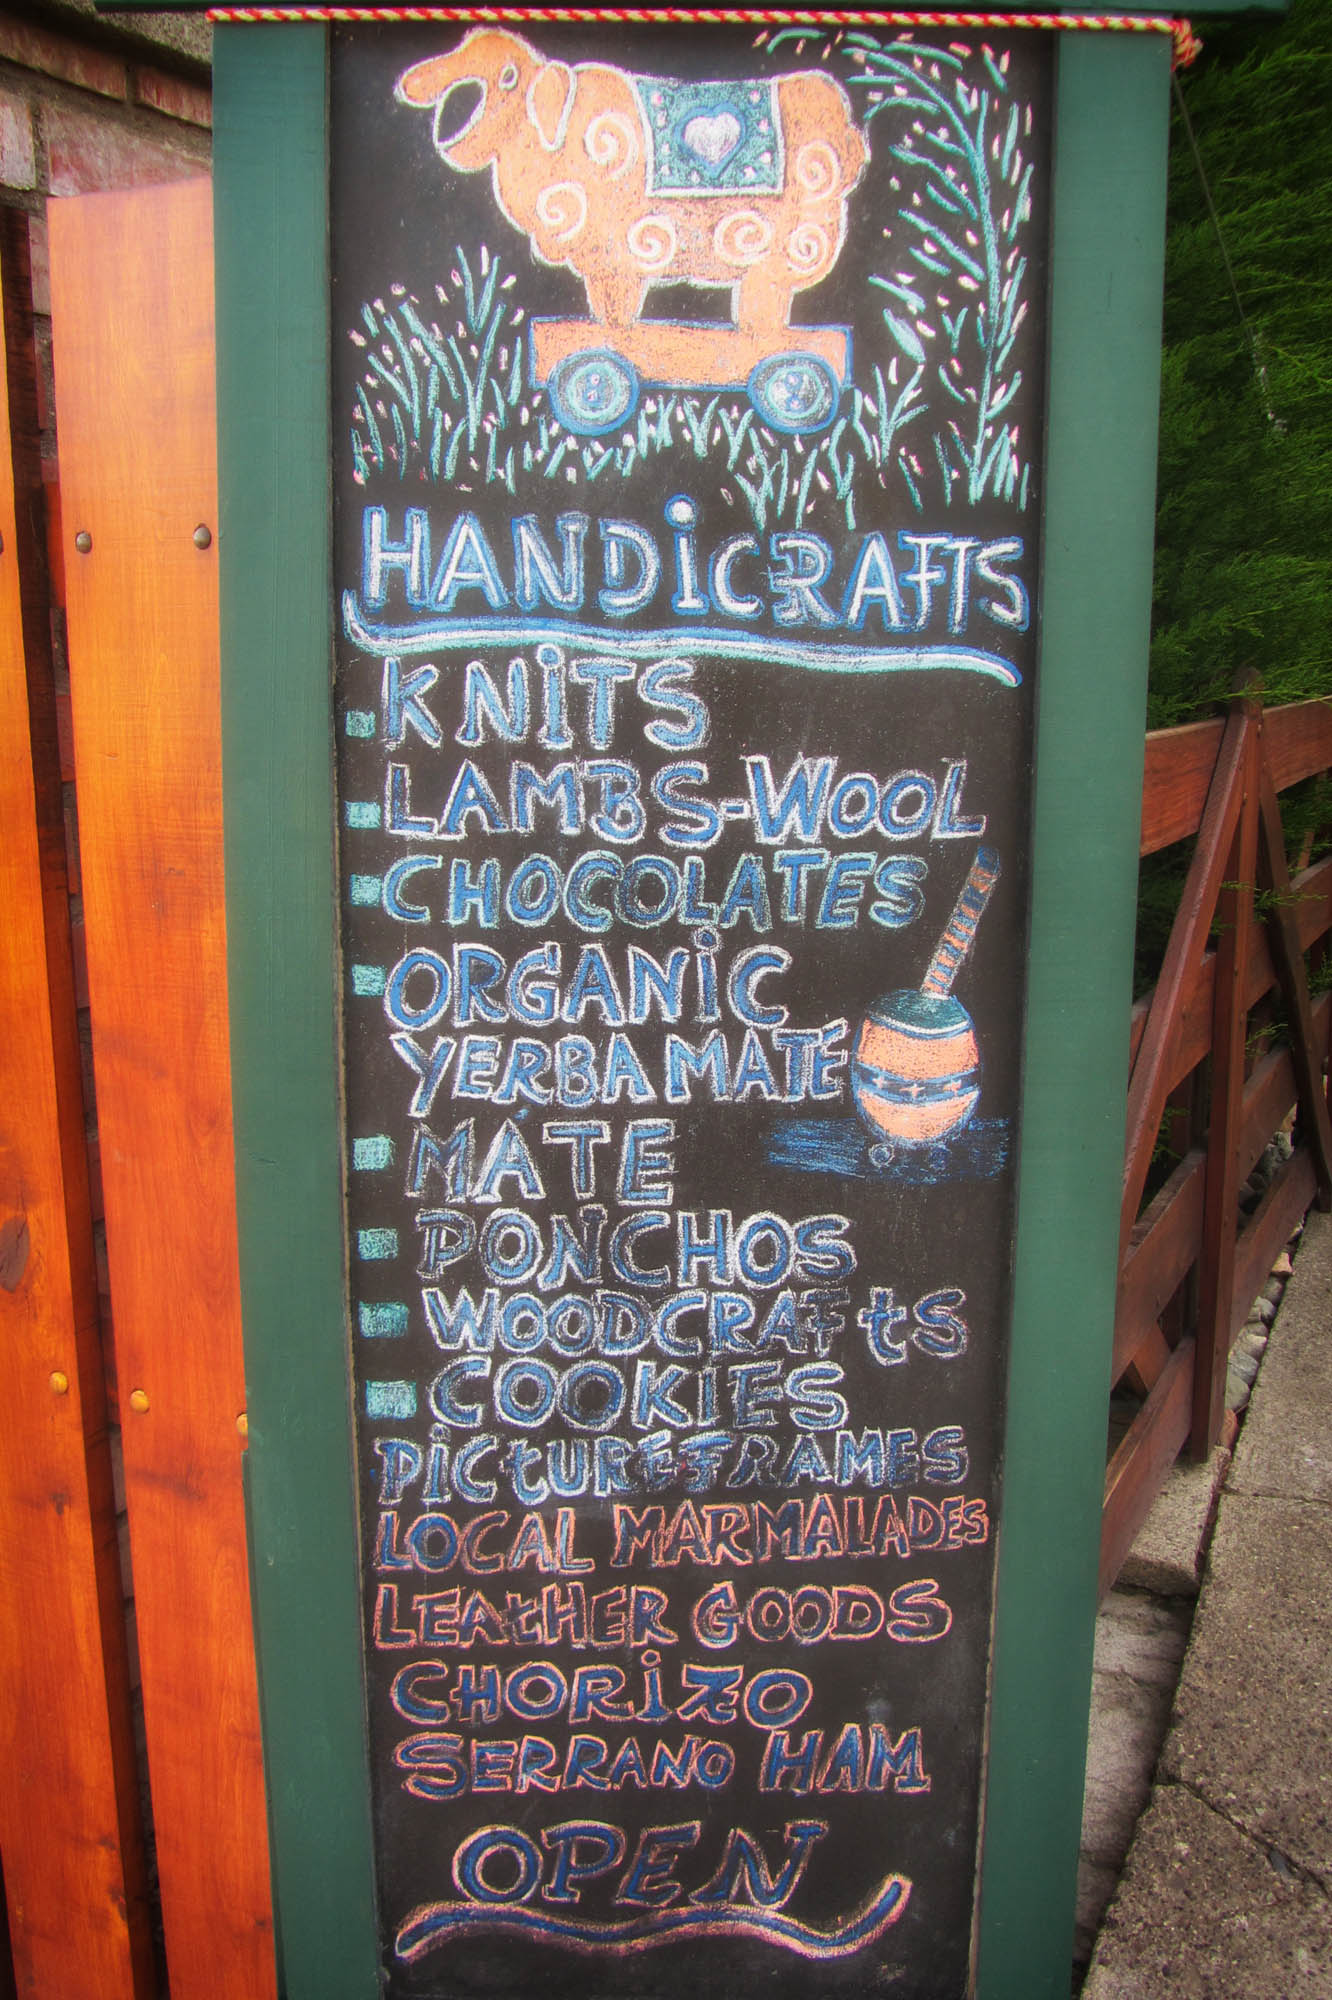 HANDiCRAFTS
KNiTS
LAMBS-WOOL
CHOCOLATES
ORGANiC
YERBA MATE
MÁTE
PONCHOS
WOODCRAFtS
COOKIES
PiCtURE FRAMES
LOCAL MARMALADES
LEAtHER GOODS
CHORiZO
SERRANO HAM
OPEN